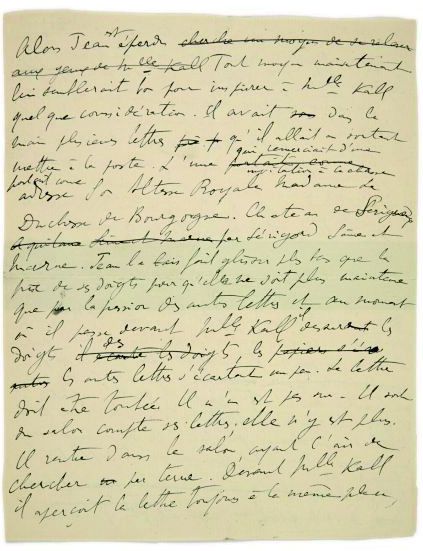 Alors Jean est éperdu cherche un moyen de se relever
aux yeux de Mlle Kall Tout moyen maintenant
lui semblerait bon pour inspirer à Mlle Kall
quelque considération. Il avait dans la
main plusieurs lettres qu'il allait en sortant
mettre à la poste. L'une qui remerciait d'une
invitation à la chasse
portait comme
adresse Son Altesse Royale Madame la
Duchesse de Bourgogne. Chateau de
par Périgord Seine et
Marne. Jean la fait glisser plus bas que la
de ses doigts pour qu'elle ne soit plus maintenue
que par la pression des autres lettres et au moment
où il passe devant Mlle Kall il desserrent les
doigts il écarte les doigts, les
les autres lettres s'écartent un peu. La lettre
doit être tombée Il n'en est pas sur. Il sort
du salon compte ses lettres. elle n'y est plus.
Il rentre dans le salon, ayant l'air de
chercher par terre. Devant Mlle Kall
il aperçoit la lettre toujours à la même place,